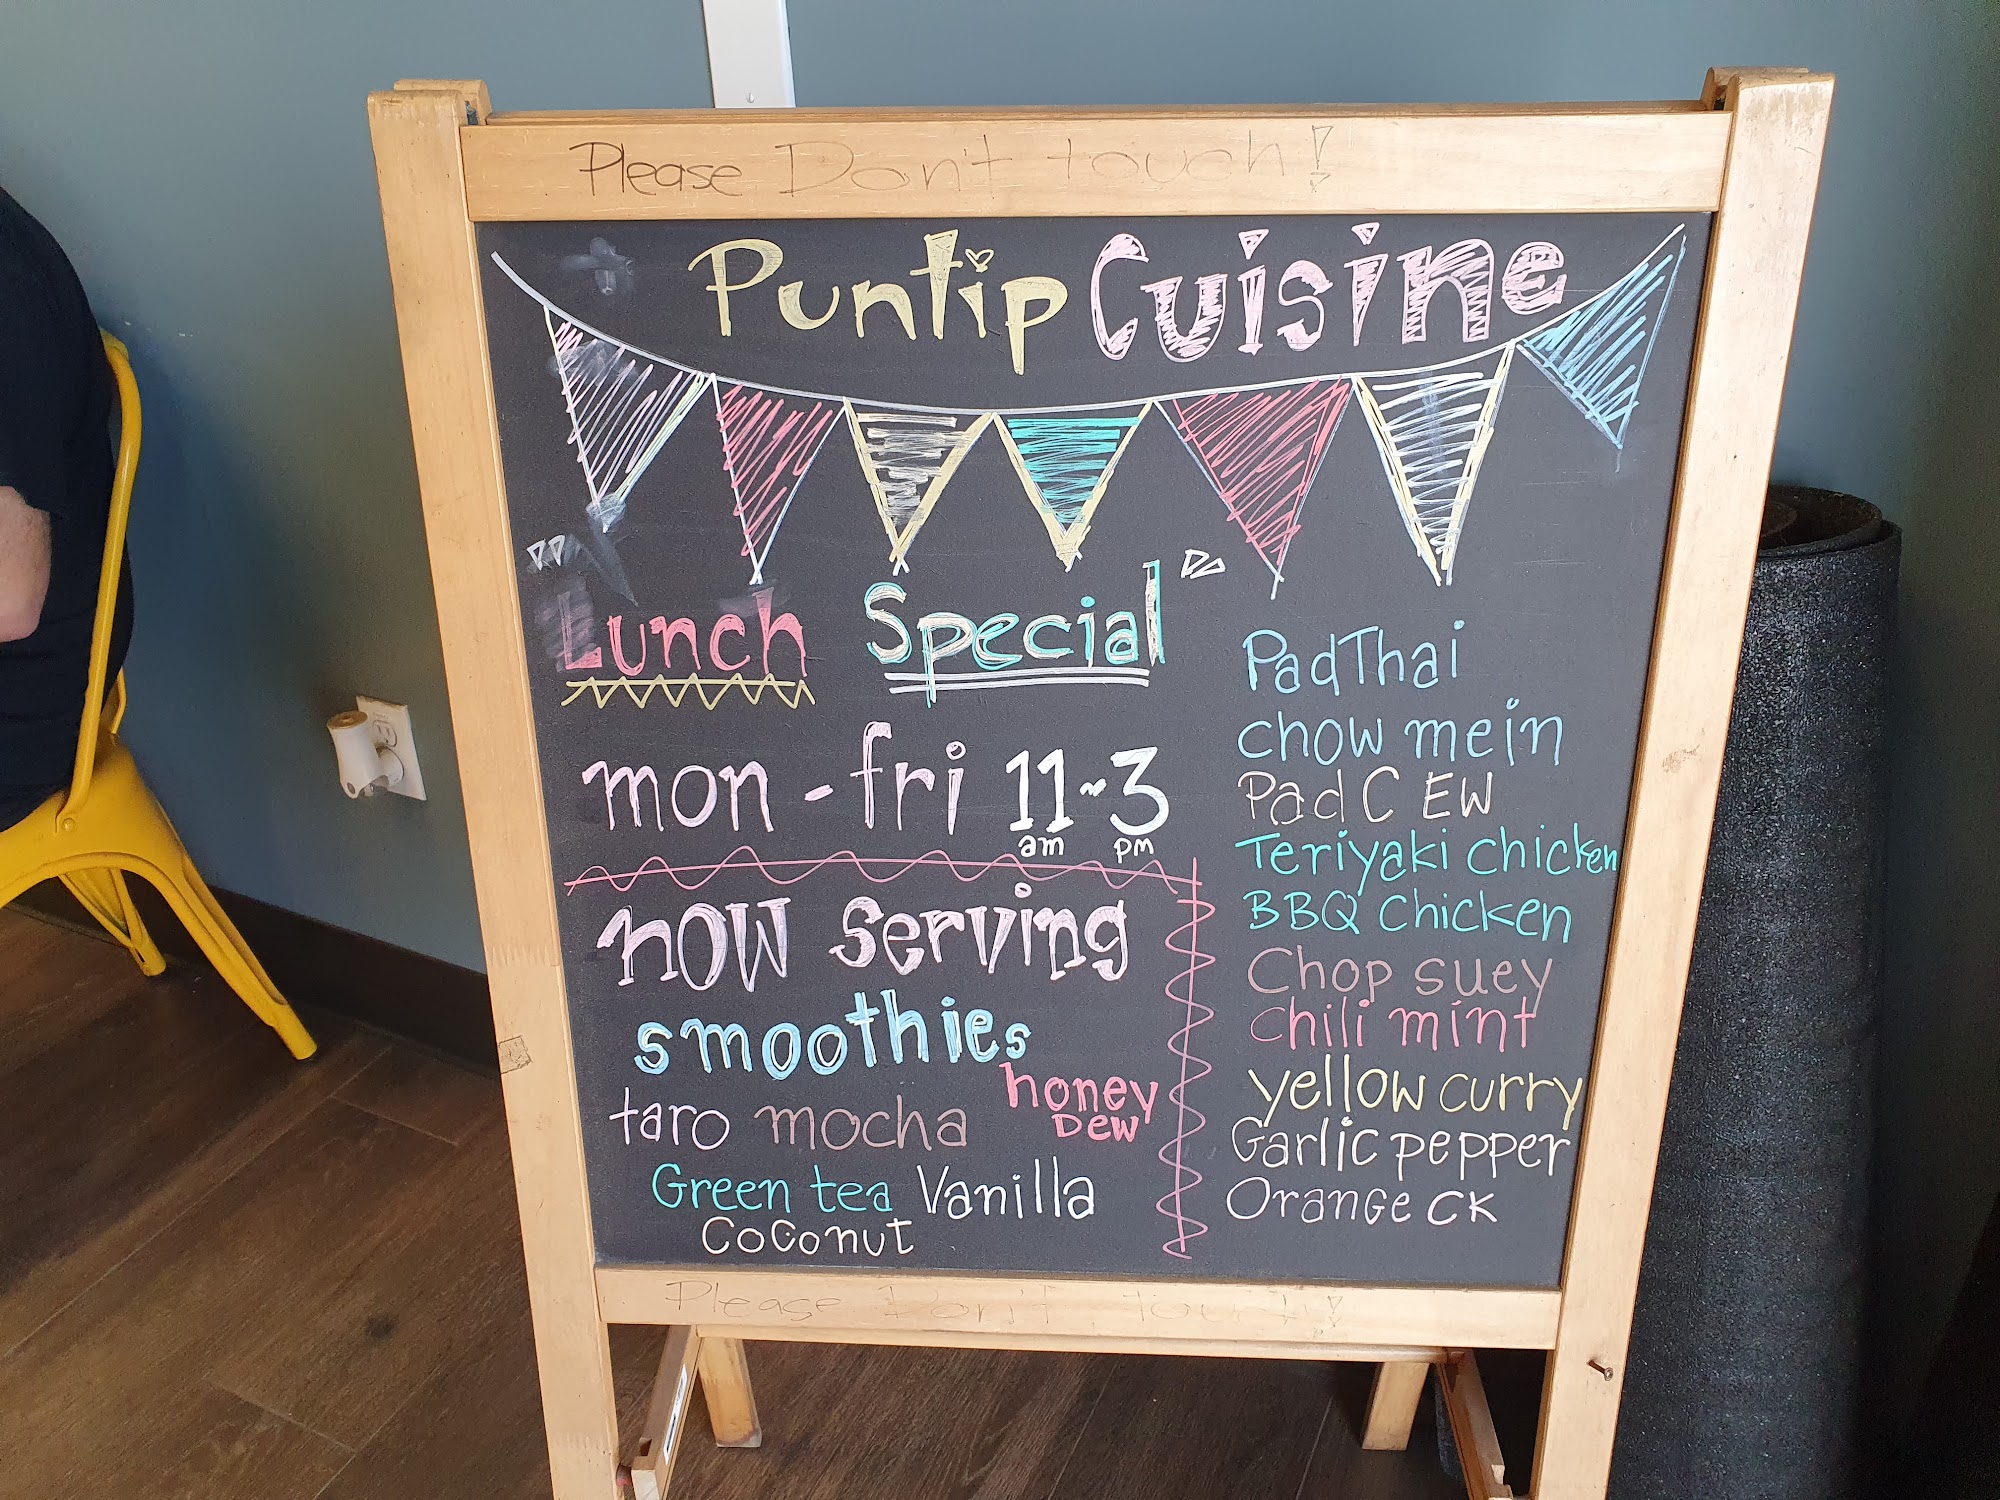 Please Don't touch!
Puntip Cuisine
" Lunch Special "
mon - fri 11 ~ 3
am pm
now serving
smoothies
taro mocha honey
DEW
Green tea Vanilla
Coconut
Pad Thai
chow mein
Pad C EW
Teriyaki chicken
BBQ Chicken
Chop suey
Chili mint
yellow curry
Garlic pepper
Orange CK
Please Don't touch!